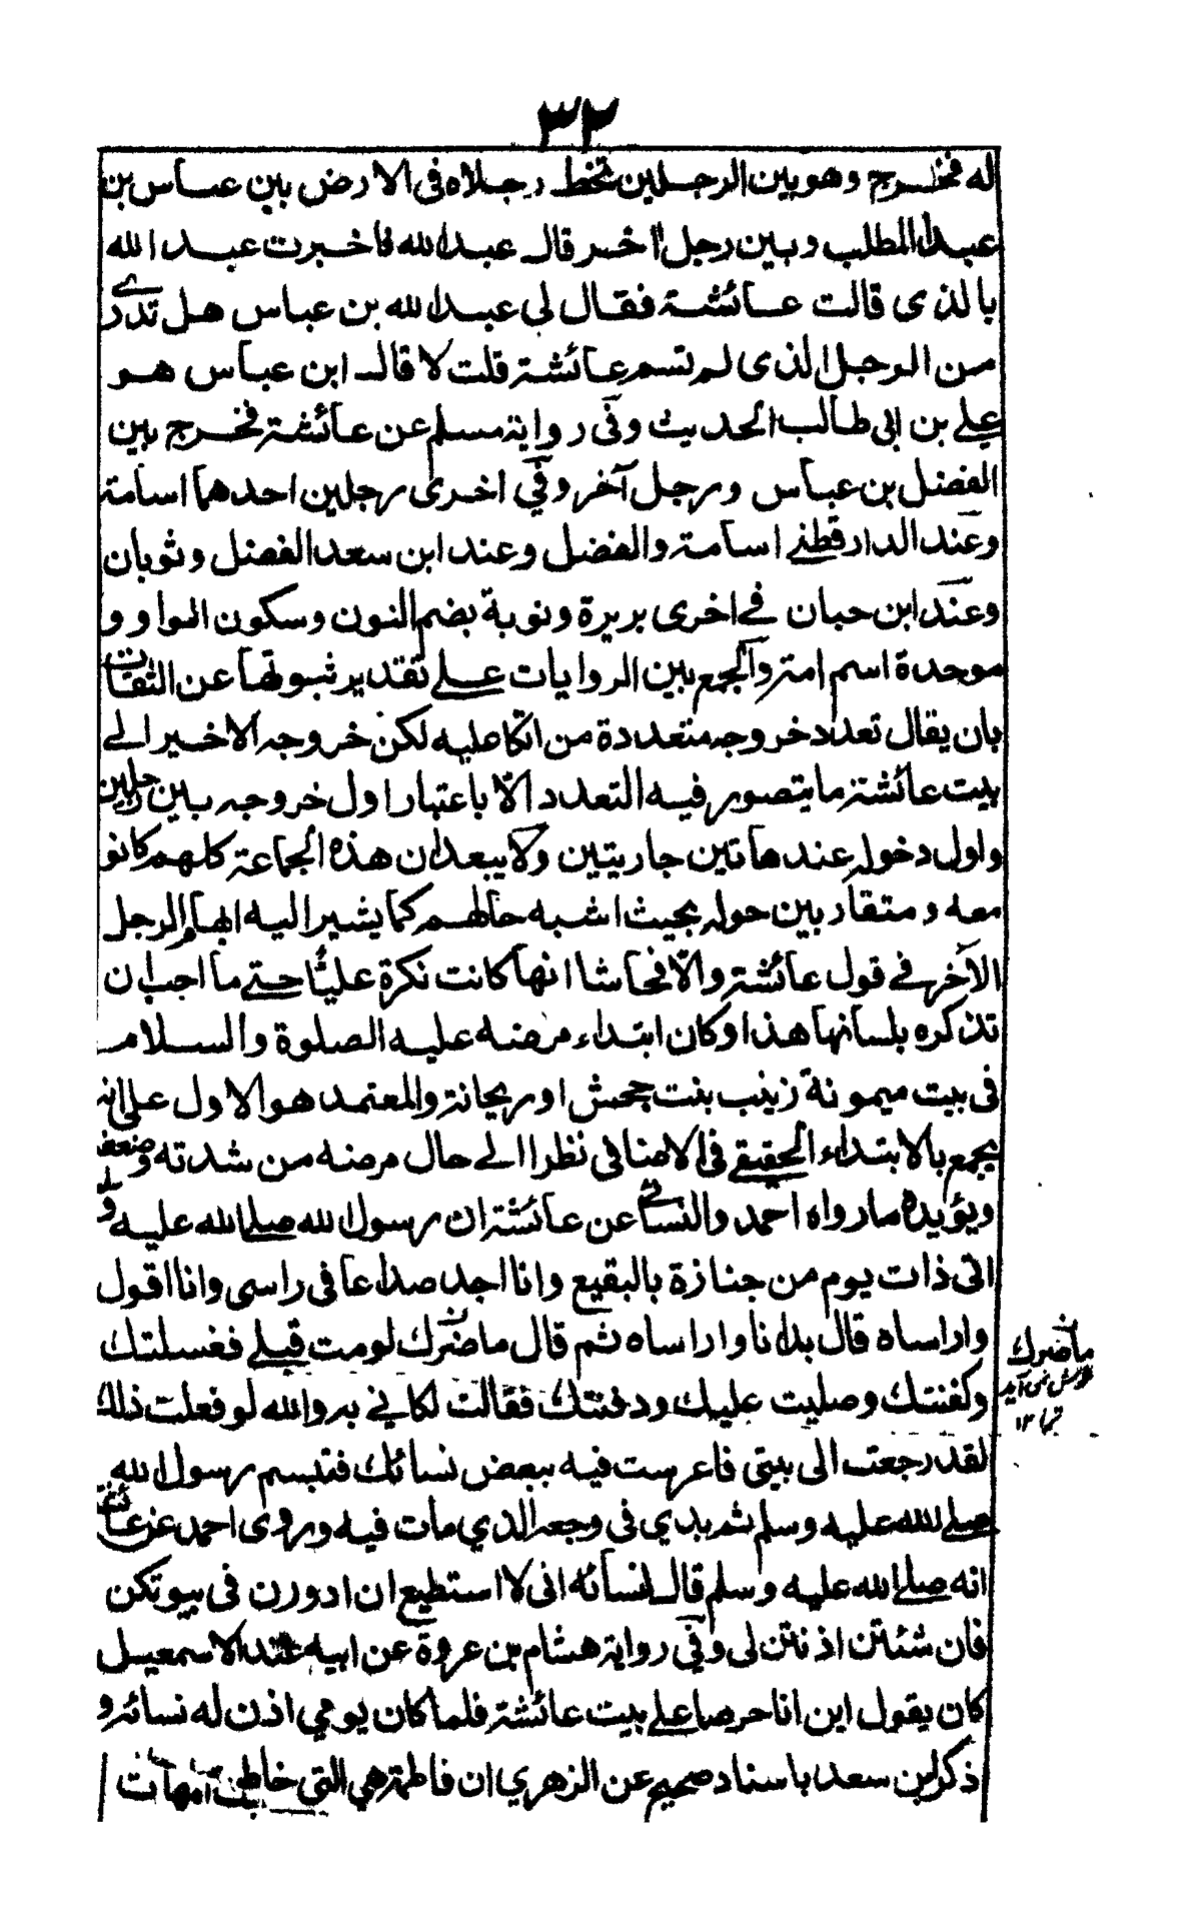 ٣٢
له فخرج وهو بين الرجلين تخط رجلاه فى الارض بين عباس بن
عبد المطلب وبين رجل اخر قال عبد الله فاخبرت عبد الله
بالذى قالت عائشة فقال لى عبد الله بن عباس هل تدرى
من الرجل الذى لم تسم عائشة قلت لا قال ابن عباس هو
على بن ابى طالب الحديث وفى رواية مسلم عن عائشة فخرج بين
الفضل بن عباس ورجل آخر وفي اخرى رجلين احدهما اسامة
وعند الدارقطنى اسامة والفضل وعند ابن سعد الفضل وثوبان
وعند ابن حبان فى اخرى بريرة ونوبة بضم النون وسكون الواو و
موحدة اسم امة والجمع بين الروايات على تقدير ثبوتها عن الثقات
بان يقال تعدد خروجه متعددة من اتكا عليه لكن خروجه الاخير الى
بيت عائشة ما يتصور فيه التعدد الا باعتبار اول خروجه بين رجلين
واول دخوله عند هاتين جاريتين ولا يبعد ان هذه الجماعة كلهم كانو
معه ومتقاربين حوله بحيث اشبه حالهم كما يشير اليه ابهام الرجل
الآخر فى قول عائشة والا فحاشا انها كانت نكرة عليا حتى ما احب ان
تذكره بلسانها هذا وكان ابتداء مرضه عليه الصلوة والسلام
فى بيت ميمونة زينب بنت جحش او ريحانة والمعتمد هو الاول على انه
يجمع بالابتداء الحقيقى فى الاضافى نظرا الى حال مرضه من شدته وضعفه
ويؤيده ما رواه احمد والنسائى عن عائشة ان رسول الله صلى الله عليه وسلم
اتى ذات يوم من جنازة بالبقيع وانا اجد صداعا فى راسى وانا اقول
واراساه قال بل انا واراساه ثم قال ما ضرك لو مت قبلى فغسلتك
وكفنتك وصليت عليك ودفنتك فقالت لكاني به والله لو فعلت ذلك
لقد رجعت الى بيتى فاعرست فيه ببعض نسائك فتبسم رسول الله
صلى الله عليه وسلم ثم بدي فى وجعه الذي مات فيه وروى احمد عن عائشة
انه صلى الله عليه وسلم قال لنسائه انى لا استطيع ان ادورن فى بيوتكن
فان شئتن اذنتن لى وفي رواية هشام بن عروة عن ابيه عند الاسمعيل
كان يقول اين انا حرصا على بيت عائشة فلما كان يومي اذن له نسائه و
ذكر ابن سعد باسناد صحيح عن الزهري ان فاطمة هي التى خاطبت امهات
ما ضرك